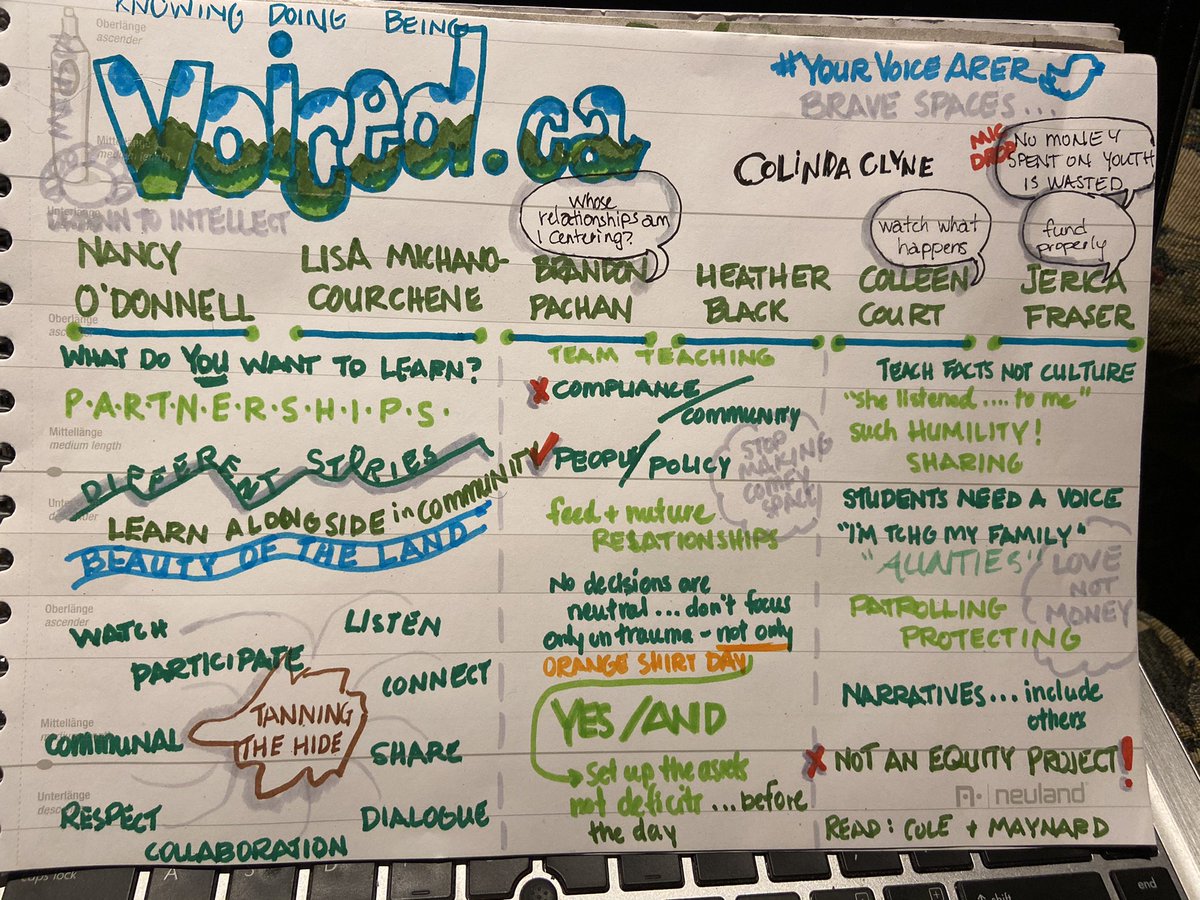 KNOWING DOING BEING
Voiced.ca
#YOURVOICEARER
BRAVE SPACES...
DRAWN TO INTELLECT
COLINDA CLYNE
MIC
DROP
NO MONEY
SPENT ON YOUTH
IS WASTED
Whose
relationships am
I centering?
watch what
happens
fund
properly
NANCY
O'DONNELL
LISA MICHANO-
COURCHENE
BRANDON
PACHAN
HEATHER
BLACK
COLLEEN
COURT
JERICA
FRASER
WHAT DO YOU WANT TO LEARN?
P.A.R.T.N.E.R.S.H.I.P.S.
DIFFERENT STORIES
LEARN ALONGSIDE in COMMUNITY
BEAUTY OF THE LAND
WATCH
LISTEN
PARTICIPATE
CONNECT
TANNING
THE HIDE
COMMUNAL
SHARE
RESPECT
DIALOGUE
COLLABORATION
TEAM TEACHING
X COMPLIANCE/
COMMUNITY
✓ PEOPLE/POLICY
STOP
MAKING
COMFY
SPACE
feed + nuture
RELATIONSHIPS
No decisions are
neutral... don't focus
only on trauma - not only
ORANGE SHIRT DAY
YES/AND
Set up the assets
not deficits... before
the day
TEACH FACTS NOT CULTURE
"she listened.... to me"
such HUMILITY!
SHARING
STUDENTS NEED A VOICE
"I'M TCHG MY FAMILY"
"AUNTIES"
LOVE
NOT
MONEY
PATROLLING
PROTECTING
NARRATIVES... include
others
X NOT AN EQUITY PROJECT!
neuland
READ: COLE + MAYNARD
Oberlänge
ascender
Mittellänge
Unterlänge
Oberlänge
Mittellänge
medium length
Oberlänge
ascender
Mittellänge
Unterlänge
caps lock
A
S
shift
end